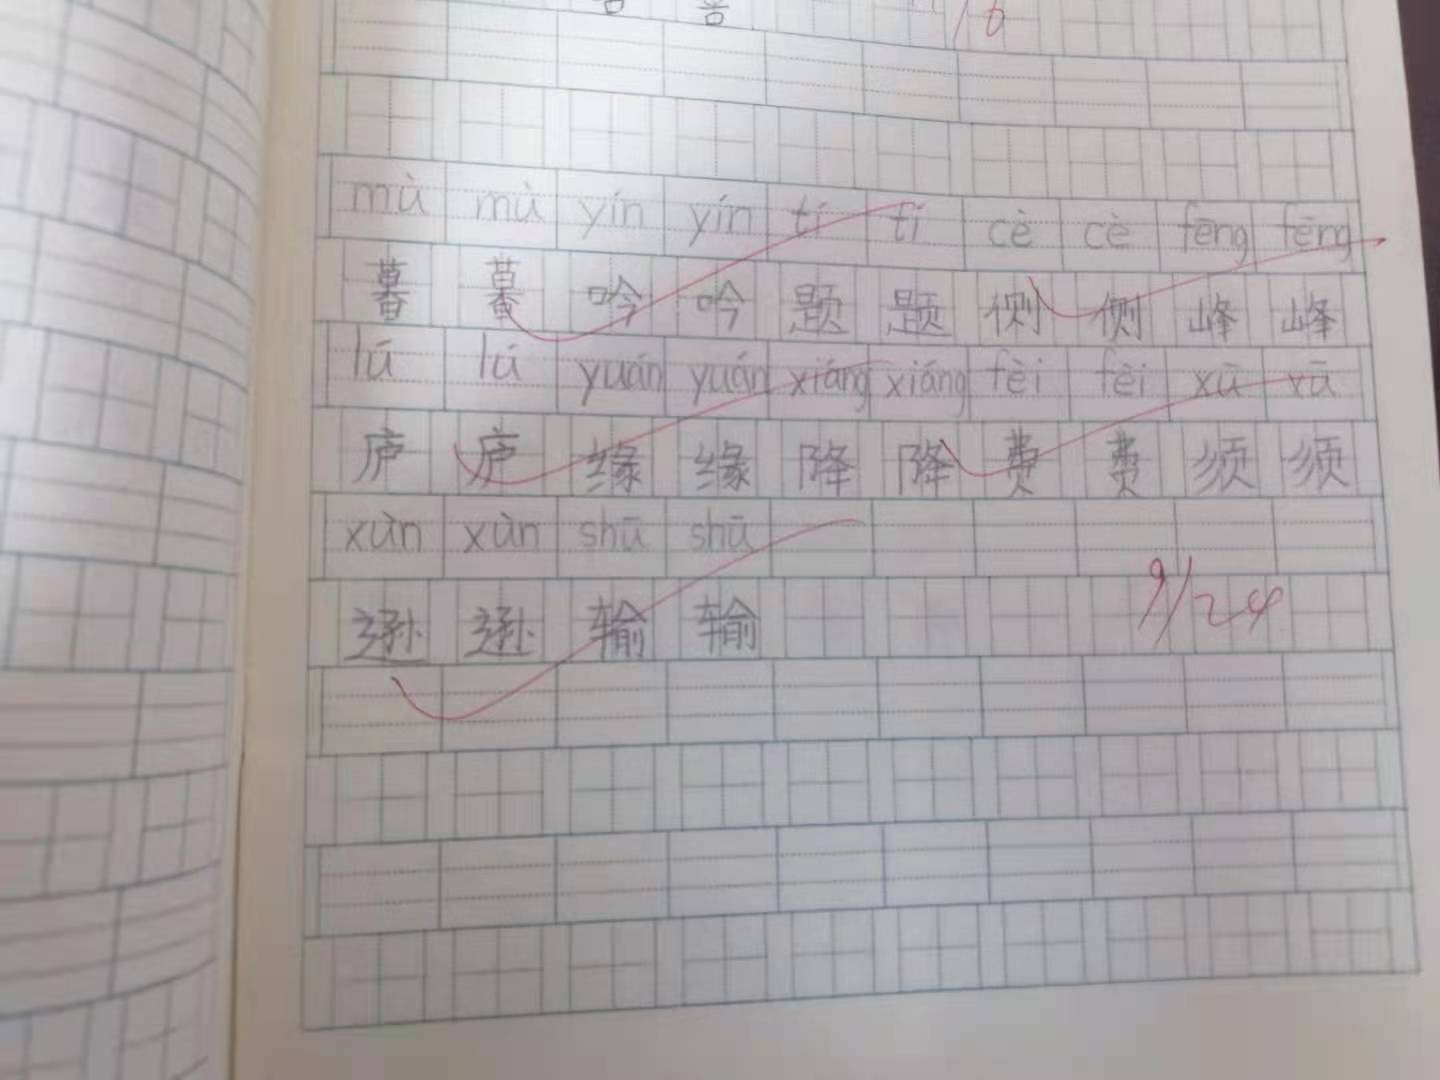 mù mù yín yín tí tí cè cè fēng fēng
暮 暮 吟 吟 题 题 侧 侧 峰 峰
lú lú yuán yuán xiáng xiáng fèi fèi xū xū
庐 庐 缘 缘 降 降 费 费 须 须
xùn xùn shū shū
逊 逊 输 输
9/24